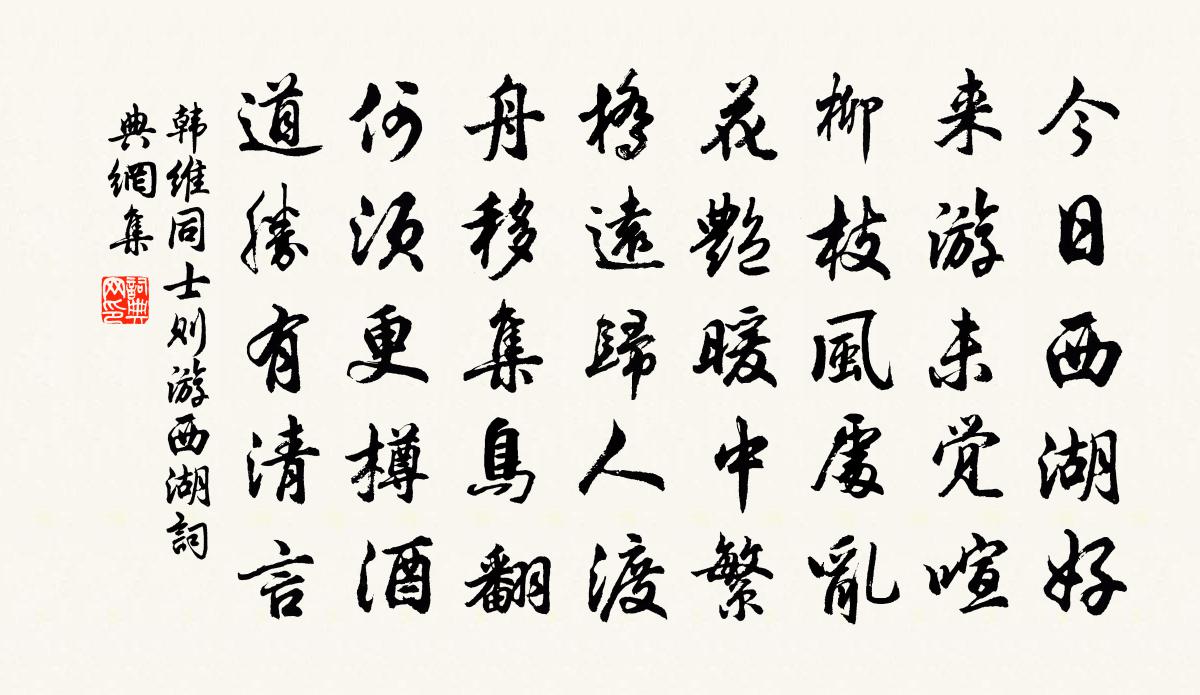 今日西湖好
来游未觉喧
柳枝風處亂
花艷暖中繁
橋遠歸人渡
舟移集鳥翻
何須更樽酒
道勝有清言
韩維同士则游西湖詞
典網集
詞典
网印